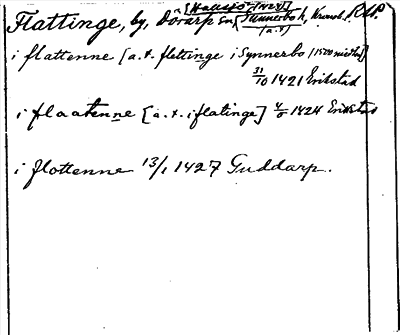 Flattinge, by, Dörarp sn, Sunnerbo h, Kronob.
(a.t)
i flattenne [a.t. flettinge i Synnerbo 1500
31/10 1421 Erikstad
i flaatenne [a.t. i flatinge] 4/5 1424 Erikstad
i flottenne 13/1 1427 Guddarp.